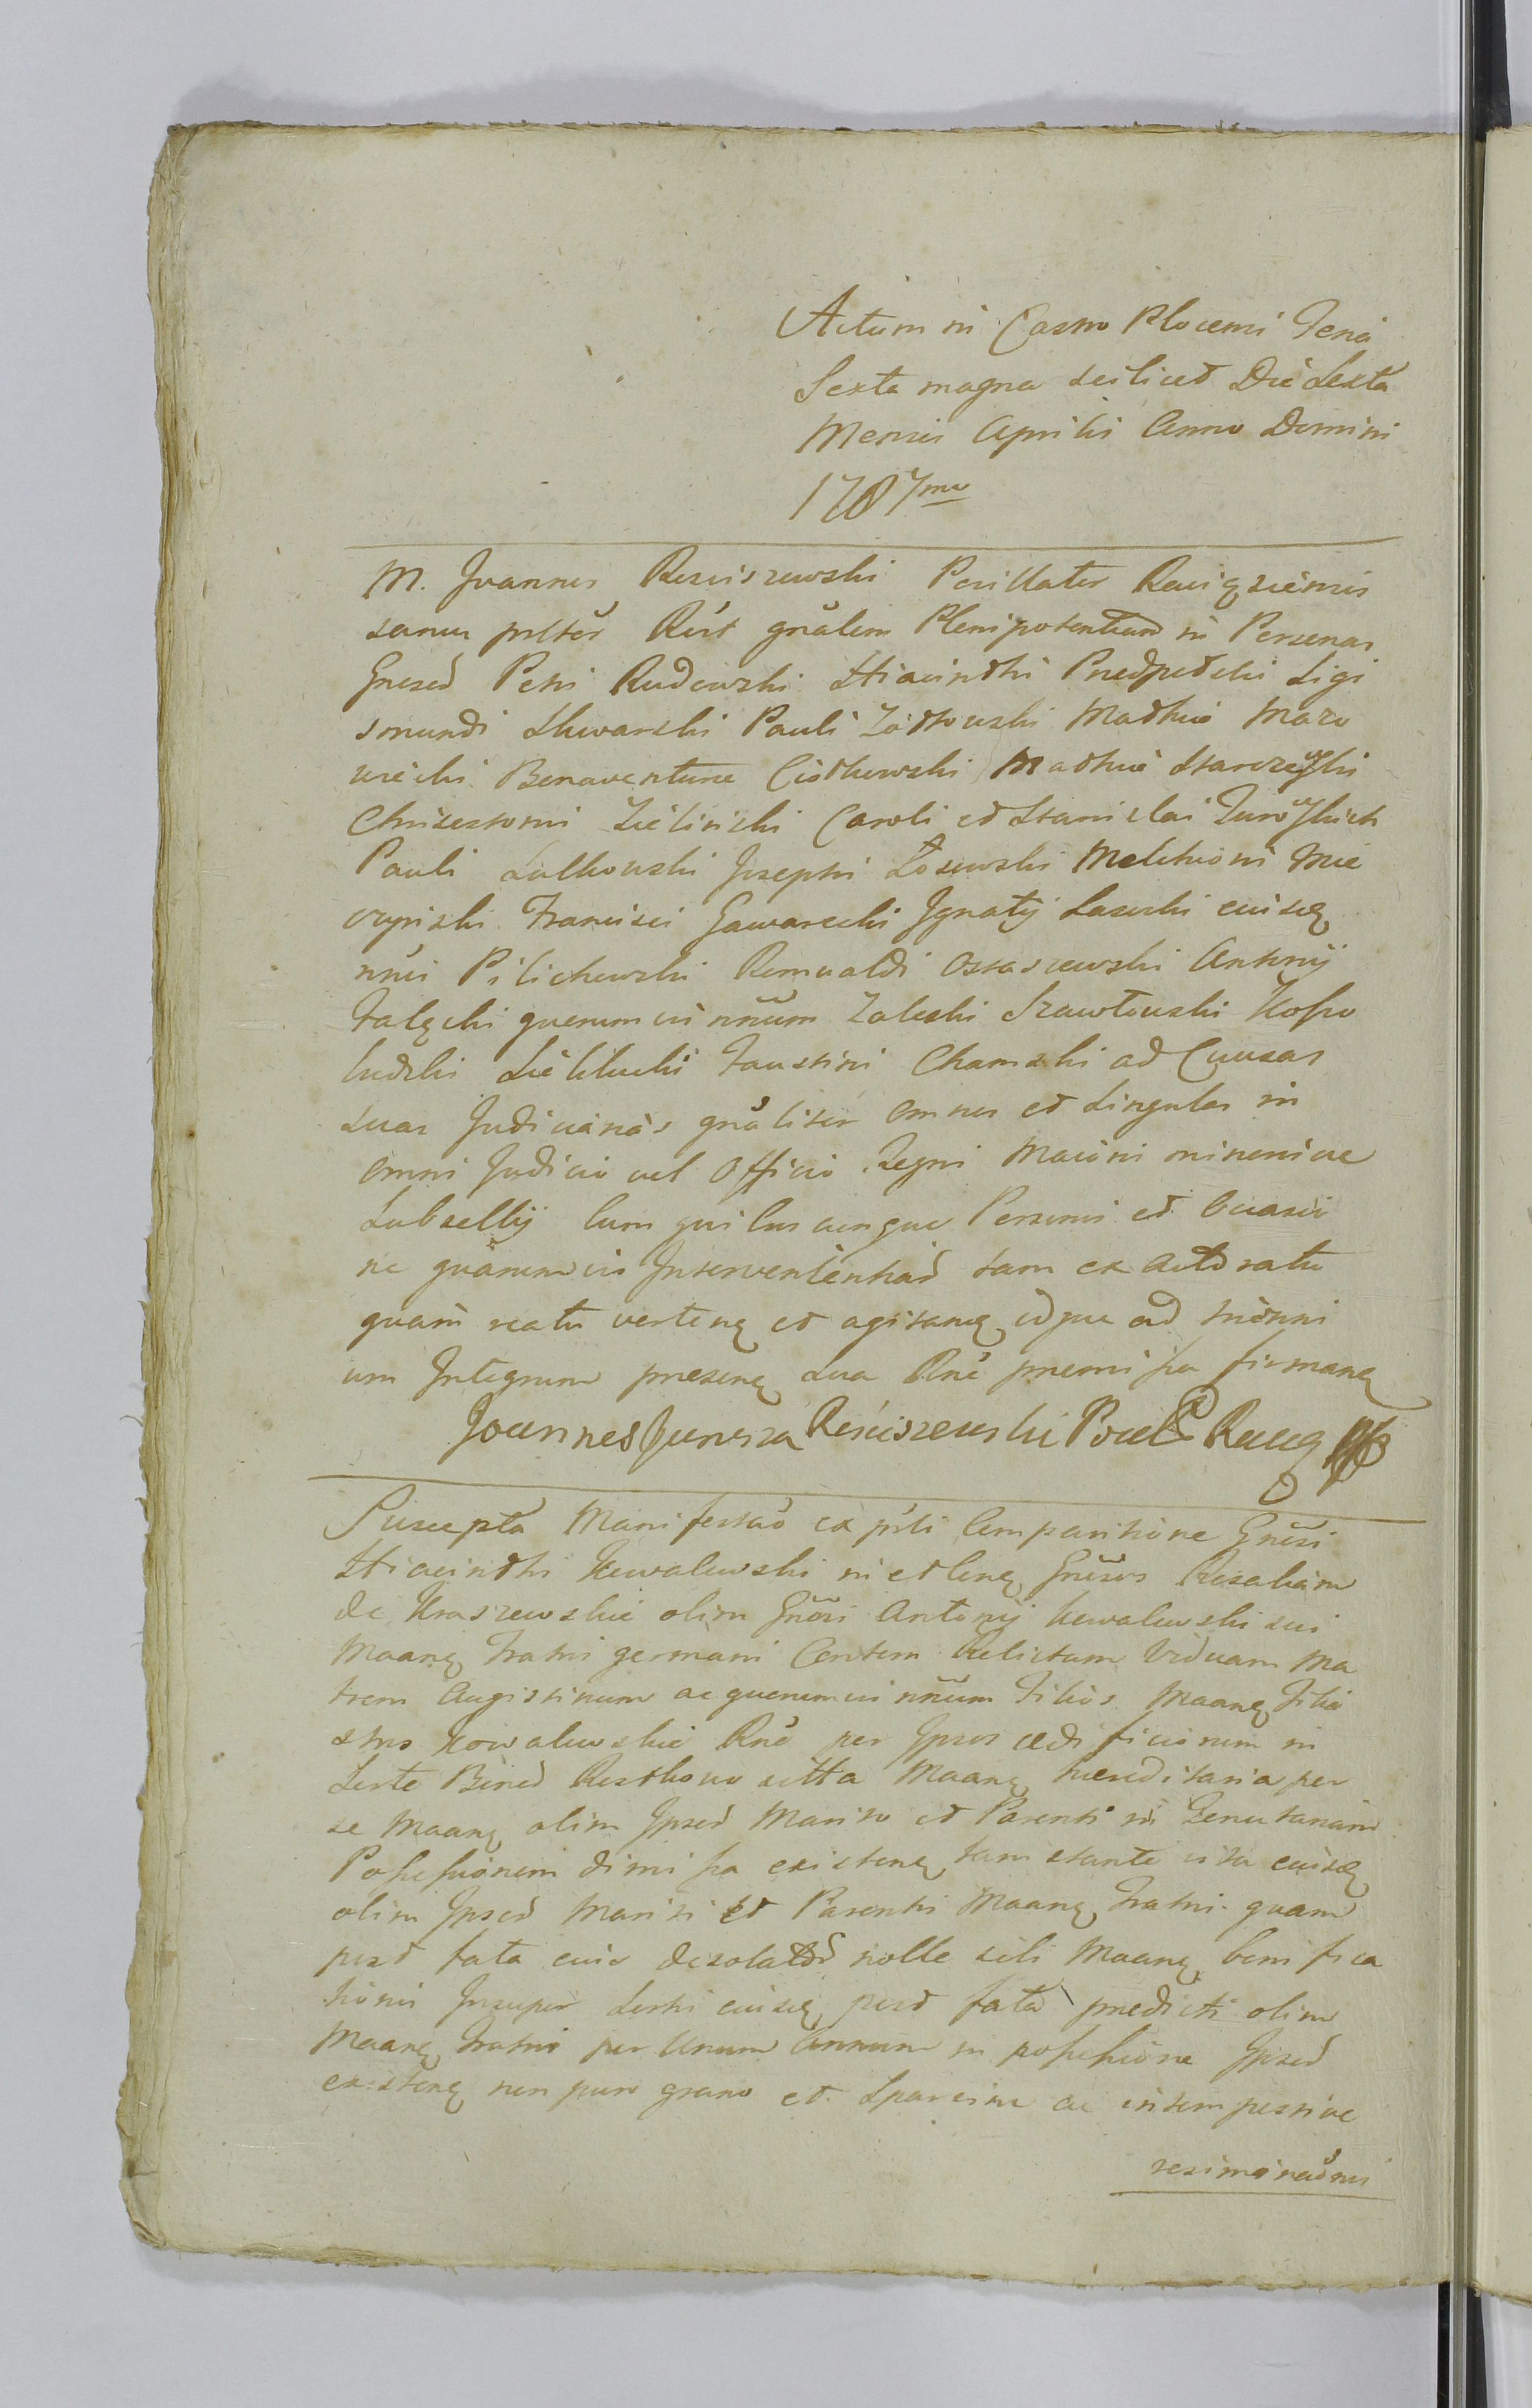 Actum in Castro Plocensi Feria
Sexta magna scilicet Die Sexta
Mensis Aprilis Anno Domini
1787mo
M. Joannes Rościszewski Pocillator Raciązensis
sanus prltěr Rěit gnǎlem Plenipotentiam in Personas
Gnesed Petri Rudowski Hiacinthi Przedpełski Sigi
smundi Skwarski Pauli Zółtowski Mathiae Mazo
wiecki Bonaventurae Ciółkowski Mathiae Starczewski
Chrisostomi Zieliński Caroli et Stanislai Zurowskich
Pauli Sulkowski Josephi Łosewski Melchioris Mie
czyński Francisci Gawarecki Ignatij Lasocki eiusq
nnis Pilichowski Romualdi Ostaszewski Antonij
Falęcki quorumvis nnum Zaleski Szawłowski Kosso
budzki Sieklucki Faustini Chamski ad Causas
suas Judiciarias gnǎliter omnes et singulas in
omni Judicio vel Officio Regni Maioris minorisve
Subsellij Cum quibuscunque Personis et occasio
ne quarumvis Intervenienciad tam ex actoratu
quam reatu verteng et agitang idque ad trienni
um Integrum praeseng Sua Rne praemissa firmang
Joannes Junosza Rościszewski Pocil Raciąg mpp
Suscepta Manifestao ex prli Comparitione Gnesi
Hiacinthi Kowalewski in et Cong Gnesos Rosaliam
de Kraszewskie olim Gnosi Antonij Kowalewski sui
Maang Fratris germani Contem Relictam Viduam Ma
trem Augustinum ac quorumvis nnum Filios Maang Filia
stros Kowalewskie Rne per Ipsos aedificiorum in
Sorte Bonod Rostkowo sitta Maang haereditaria per
se Maang olim Ipsod Marito et Parenti in Tenutariam
Possessionem dimissa existeng tam stante vita eiusq
olim Ipsod Mariti et Parentis Maang Fratris quam
post fata eius desolatod nolle sibi Maang bonifica
tionis Insuper Sortis eiusq post fata praedicti olim
Maang Fratris per Unum Annum in possessione Ipsod
existeng non puro grano et Sparsim ac intempestive
reseminaonis